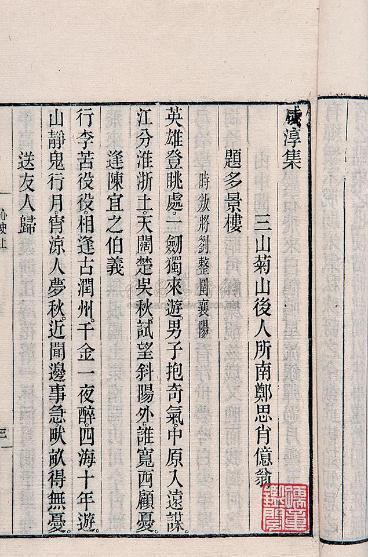 咸淳集
三山菊山後人所南鄭思肖億翁
題多景樓
時叛將劉整圍襄陽
英雄登眺處一劒獨來遊男子抱奇氣中原入遠謀
江分淮浙土天闊楚吳秋試望斜陽外誰寬西顧憂
逢陳宜之伯義
行李苦役役相逢古潤州千金一夜醉四海十年遊
山靜鬼行月宵涼人夢秋近聞邊事急畎畝得無憂
送友人歸